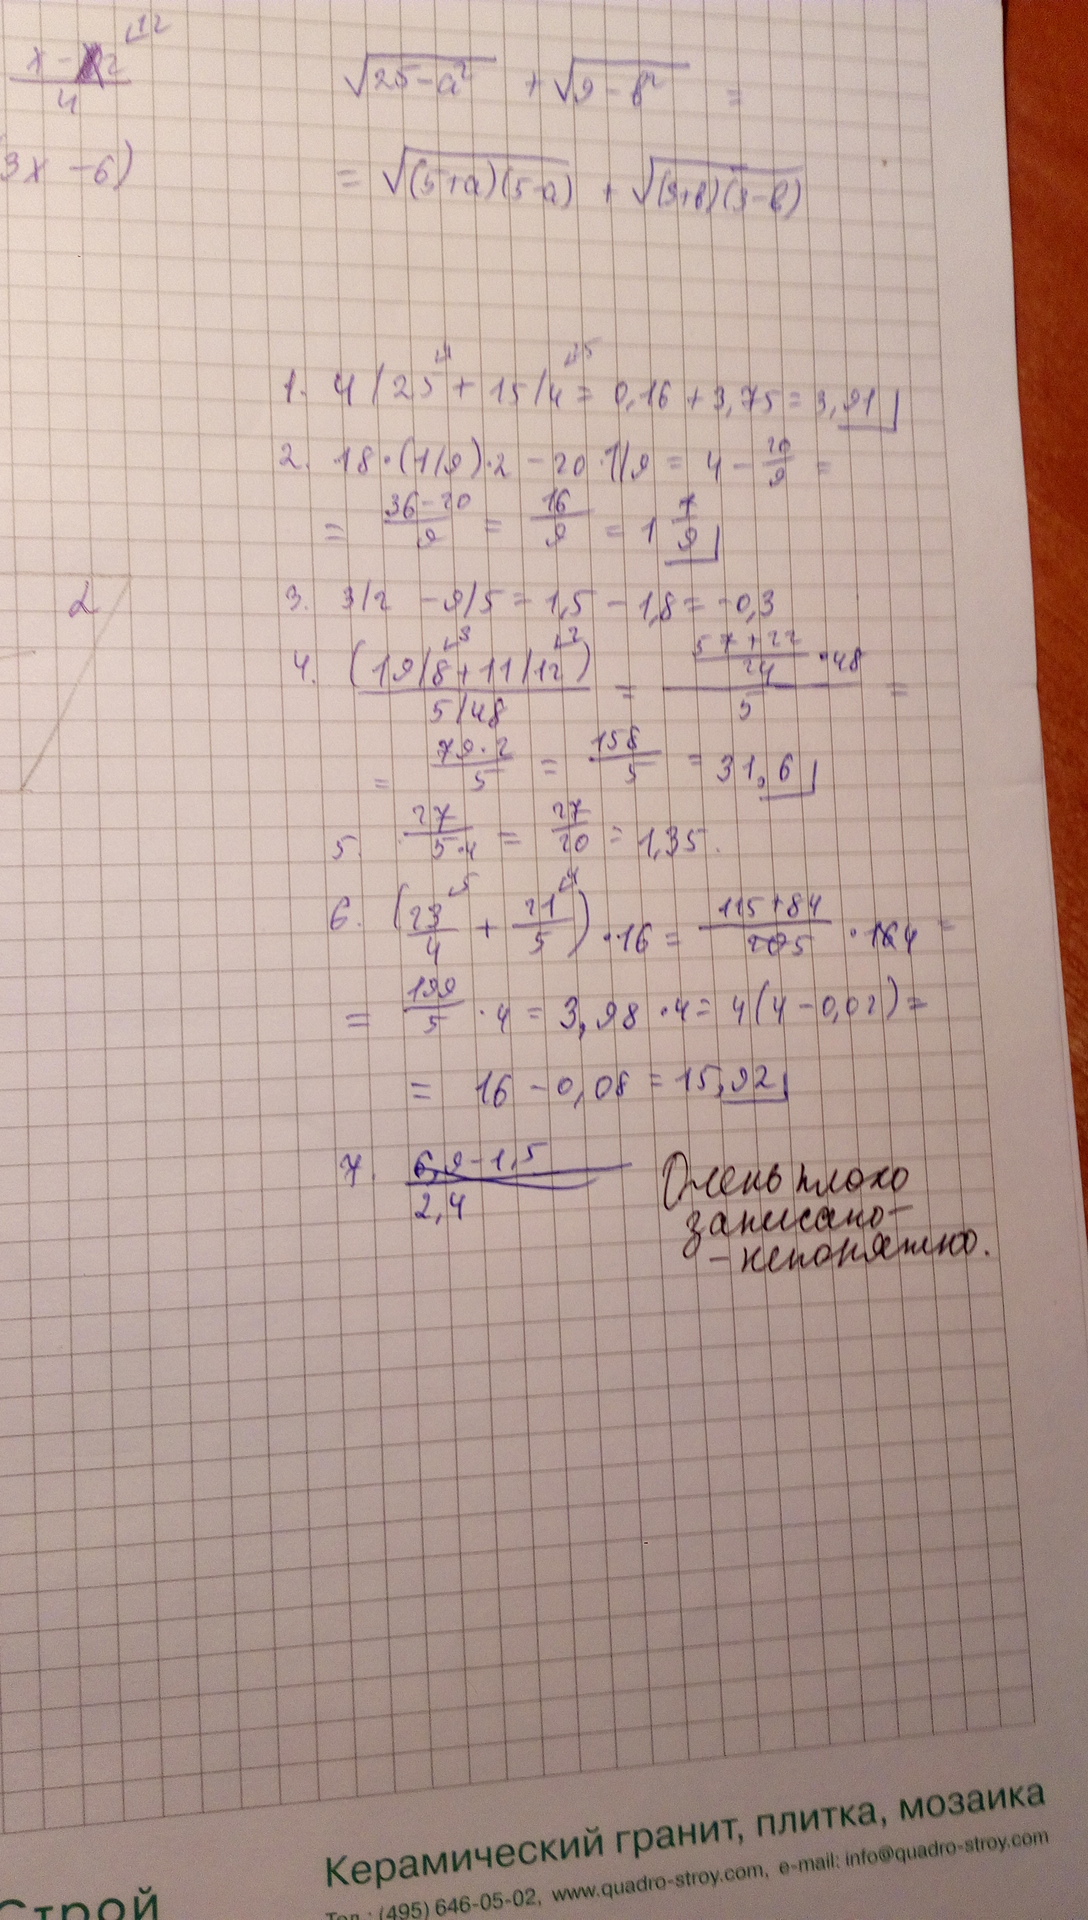 x - 2 ⌞12
4
3x - 6)
√25-a² + √9-b² =
= √(5+a)(5-a) + √(3+b)(3-b)
1. 4/25 ⌞4 + 15/4 ⌞25 = 0,16 + 3,75 = 3,91
2. 18·(1/9)·2 - 20·1/9 = 4 - 20/9 =
= 36-20/9 = 16/9 = 1 7/9
2
3. 3/2 - 9/5 = 1,5 - 1,8 = -0,3
4. (19/8 ⌞3 + 11/12 ⌞2) / 5/48 = 57+22/24 · 48 / 5 =
= 79·2/5 = 158/5 = 31,6
5. 27/5·4 = 27/20 = 1,35.
6. (23/4 ⌞5 + 21/5 ⌞4) · 16 = 115+84/205 · 164 =
= 199/5 · 4 = 3,98 · 4 = 4(4 - 0,02) =
= 16 - 0,08 = 15,92
7. 6,9 - 1,5
2,4
Очень плохо
записано-
- непонятно.
Строй
Керамический гранит, плитка, мозаика
Тел.: (495) 646-05-02, www.quadro-stroy.com, e-mail: info@quadro-stroy.com